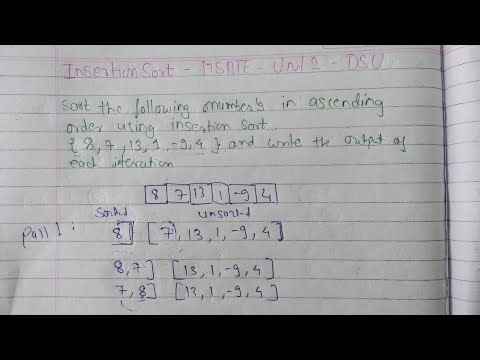 Insertion Sort - MSBTE - Unit 2 - DSU
Sort the following number's in ascending
order using insertion sort.
{ 8, 7, 13, 1, -9, 4 } and write the output of
each iteration
8 7 13 1 -9 4
Sorted unsorted
Pass 1 : 8] [ 7, 13, 1, -9, 4 ]
8, 7] [13, 1, -9, 4 ]
7, 8] [13, 1, -9, 4 ]